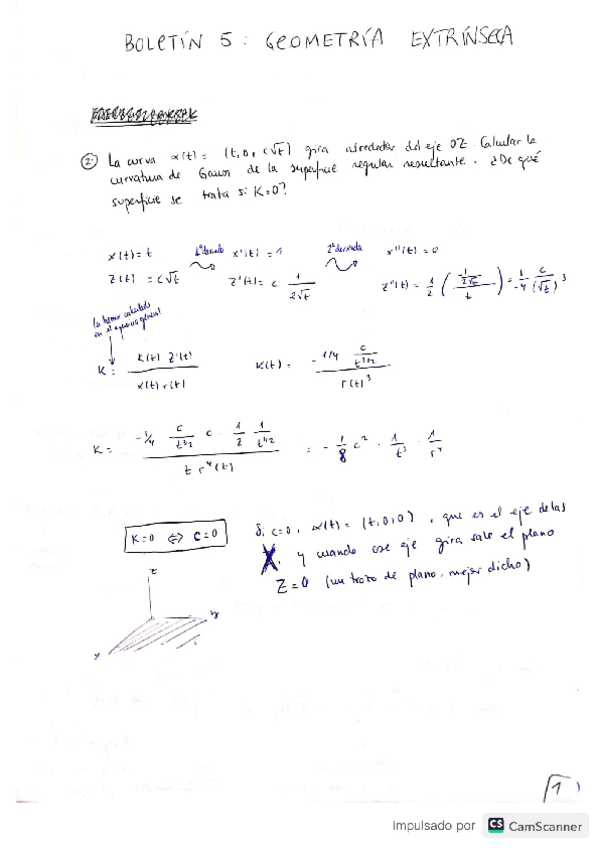 BOLETÍN 5: GEOMETRÍA EXTRÍNSECA
2. La curva α(t) = (t, 0, c√t) gira alrededor del eje OZ. Calcular la
curvatura de Gauss de la superficie regular resultante. ¿De qué
superficie se trata si K=0?
x(t) = t 1ª derivada x'(t) = 1 2ª derivada x''(t) = 0
z(t) = c√t z'(t) = c 1/(2√t) z''(t) = 1/2 ( (-1/(2√t))/t ) = 1/-4 c/(√t)^3
la hemos calculado
en el ejercicio general
K = k(t) z'(t) / x(t) r(t) k(t) = -1/4 c/t^(3/2) / r(t)^3
K = -1/4 c/t^(3/2) c · 1/2 1/t^(1/2) / t r^4(t) = -1/8 c² · 1/t³ · 1/r^4
K=0 ⇔ C=0
Si c=0, α(t) = (t,0,0), que es el eje de las
X, y cuando ese eje gira sale el plano
Z=0 (un trozo de plano, mejor dicho)
z
y
x
1
Impulsado por CS CamScanner